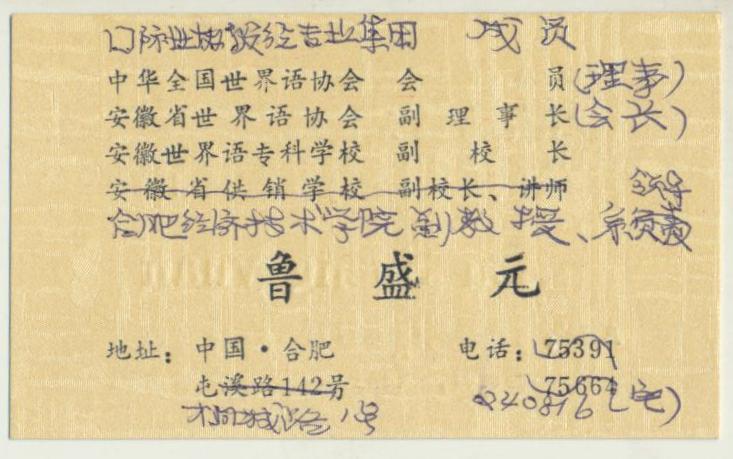 国际世协教经专业集团 成员
中华全国世界语协会 会员(理事)
安徽省世界语协会 副理事长(会长)
安徽世界语专科学校 副校长
安徽省供销学校 副校长、讲师
合肥经济技术学院 副教授、系负责
领导
鲁盛元
地址：中国·合肥 电话：75391
屯溪路142号 75664
桐城路1号 2240816(宅)